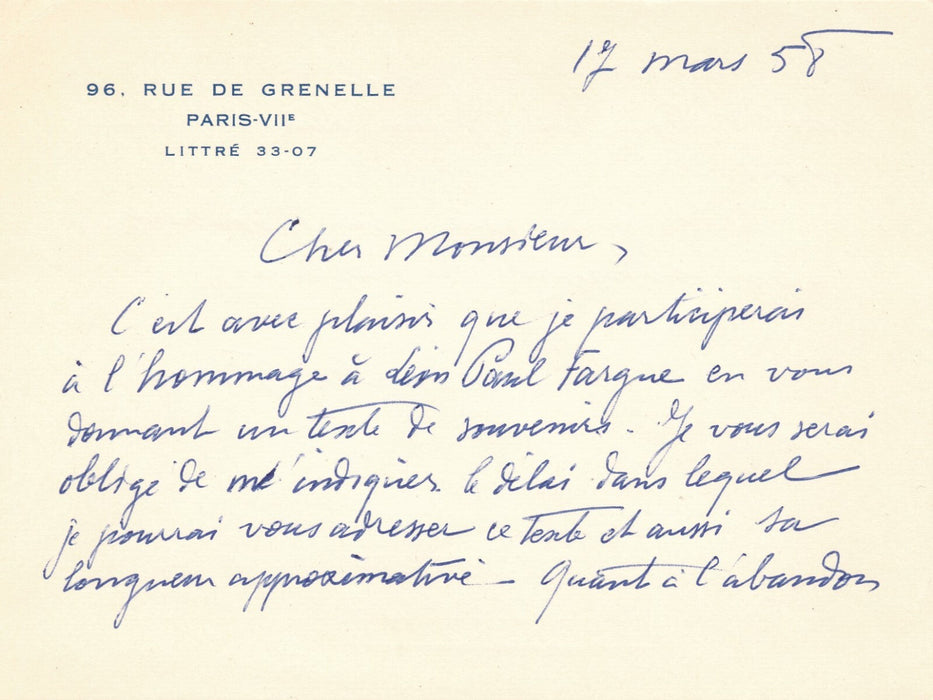 17 mars 58
96, RUE DE GRENELLE
PARIS-VIIE
LITTRÉ 33-07
Cher Monsieur,
C'est avec plaisir que je participerai
à l'hommage à Léon Paul Fargue en vous
donnant un texte de souvenirs. Je vous serai
obligé de m'indiquer le délai dans lequel
je pourrai vous adresser ce texte et aussi sa
longueur approximative - Quant à l'abandon